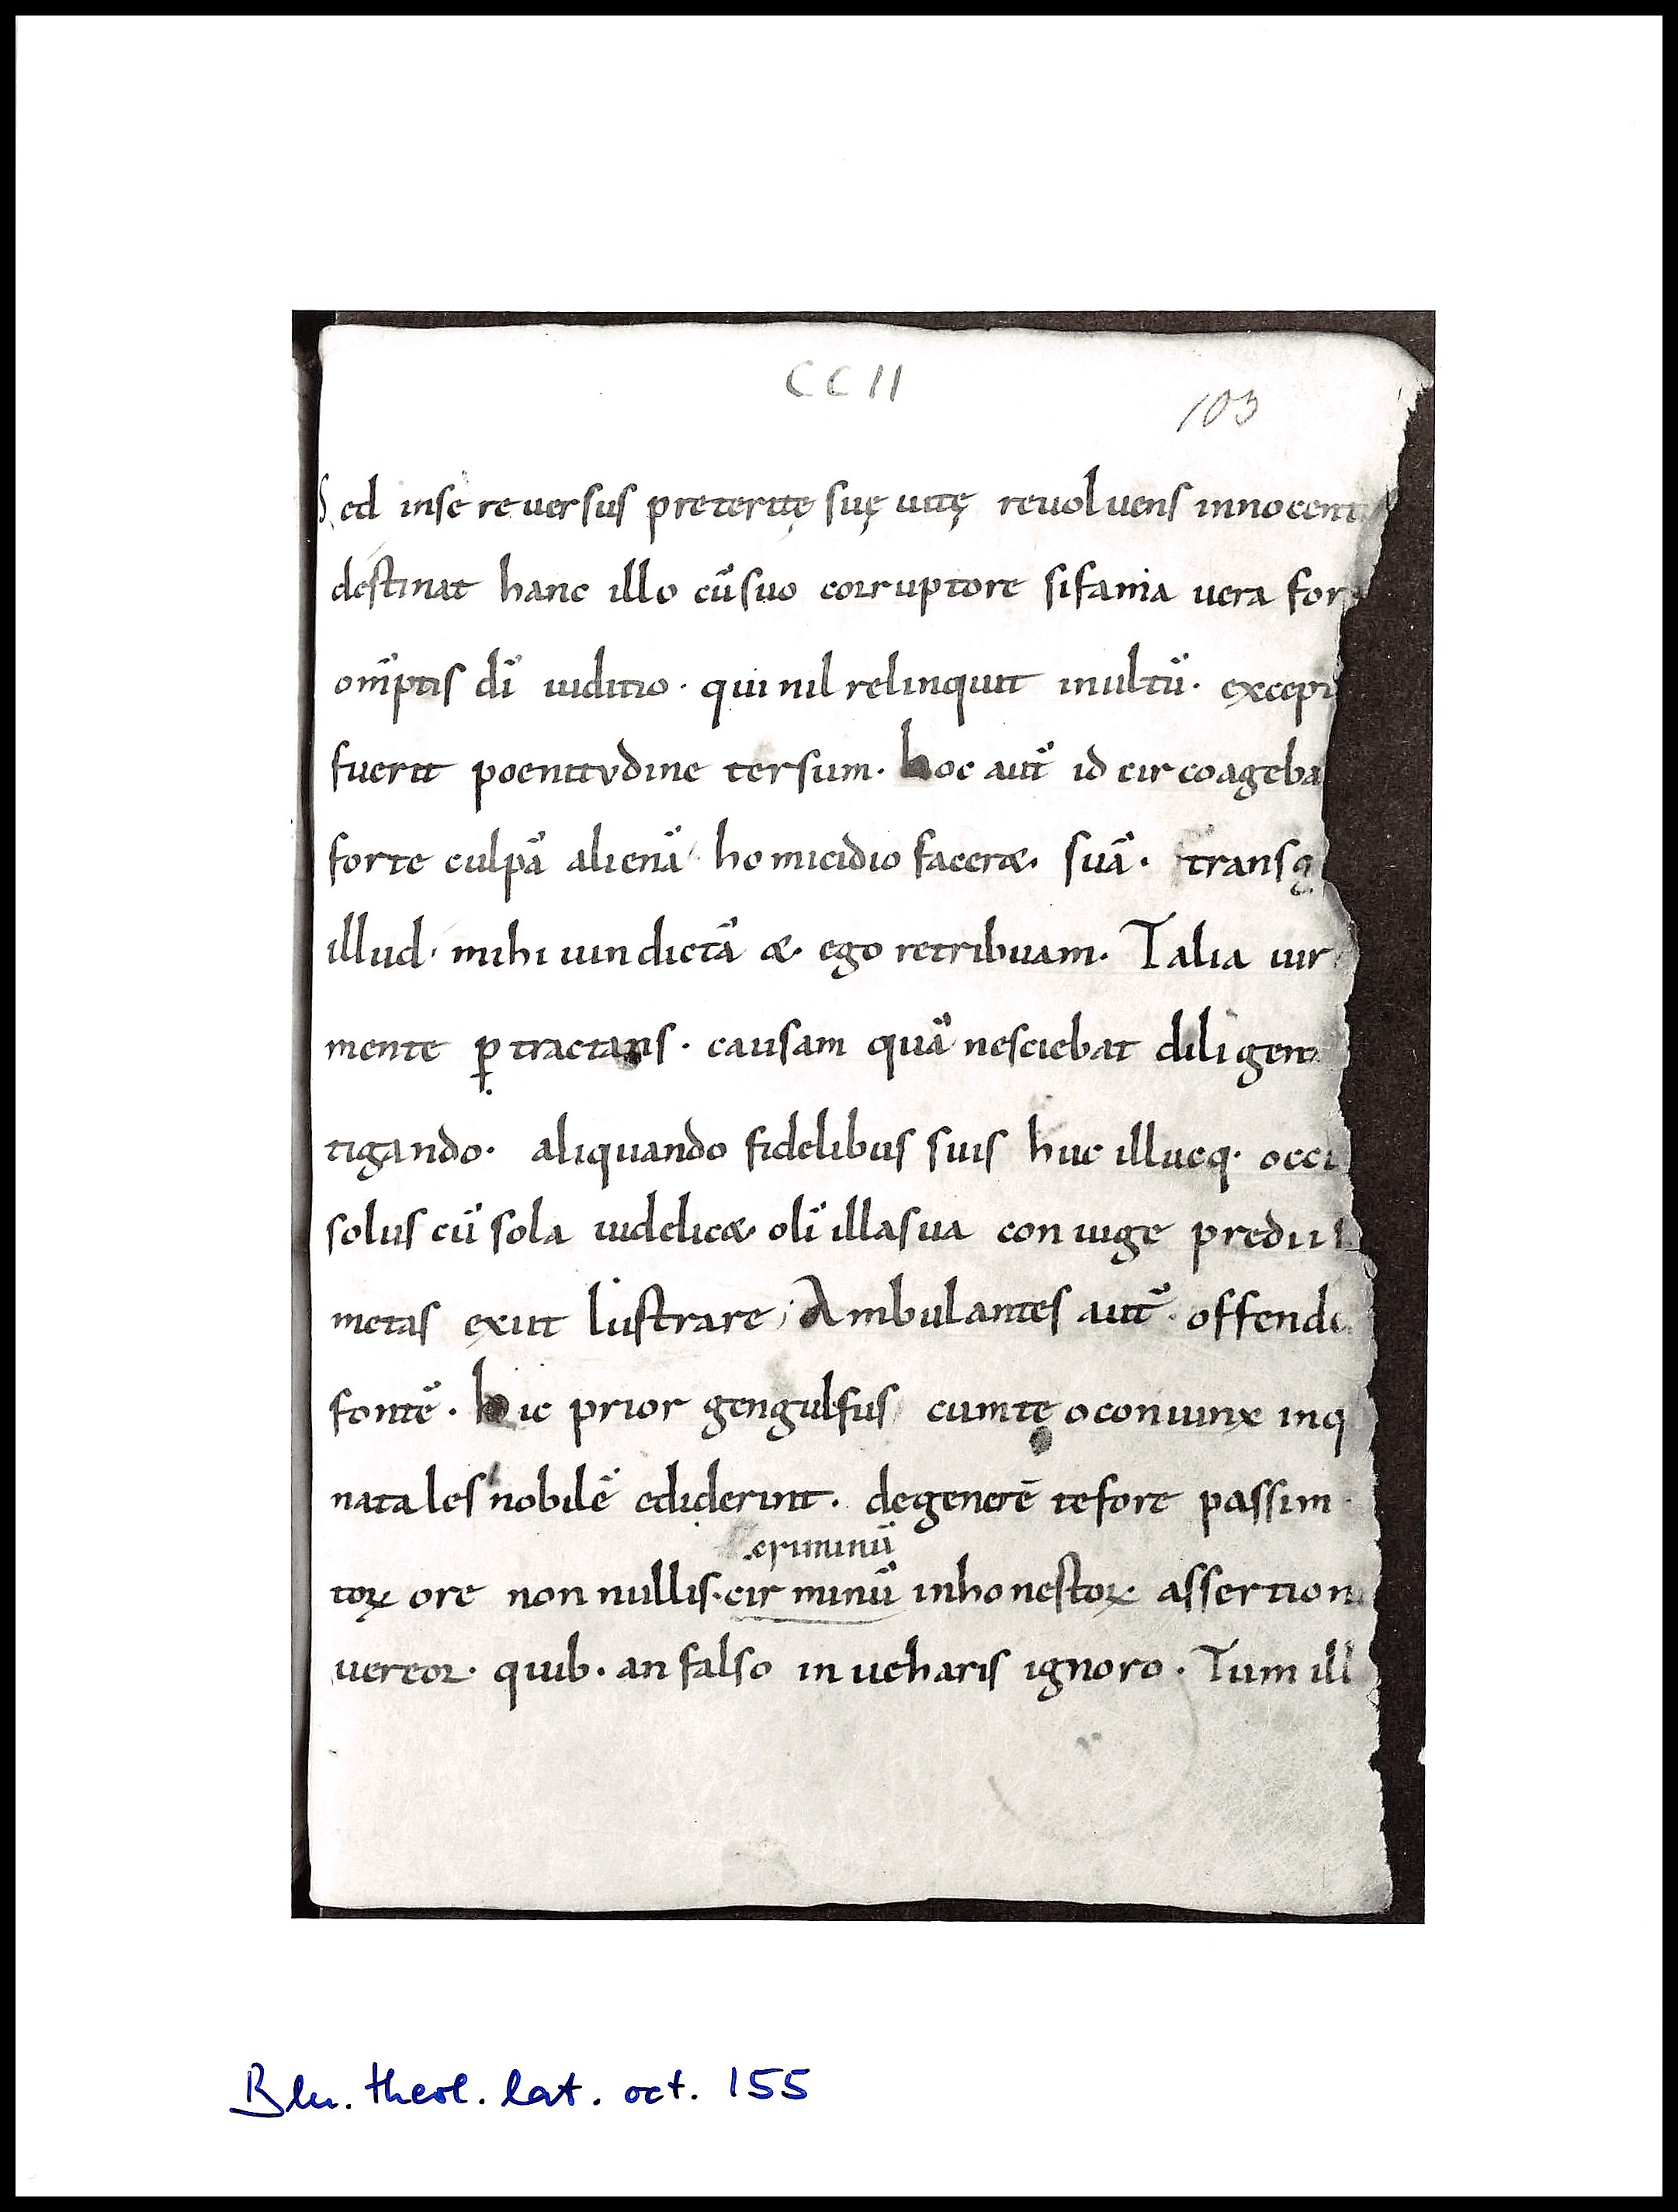 CCII
103
Sed inse reuersus preteritę suę uitę reuoluens innocent
destinat hanc illo cū suo corruptore si fama uera for
om̄ptis dī iuditio · qui nil relinquit inultū · except
fuerit poenitvdine tersum · hoc aut̄ idcirco ageba
forte culpā alienā homicidio faceret · suā · transg
illud · mihi uindictā et · ego retribuam · Talia uir
mente ꝑtractans · causam quā nesciebat diligent
tigando · aliquando fidelibus suis huc illucq · occu
solus cū sola uidelicet · olī illa sua coniuge predil
metas exiit lustrare ; Ambulantes aut̄ · offende
fontē · hic prior gengulfus cum te o coniunx inq
natales nobilē ediderint · degenerē te fore passim
.criminū
toꝝ ore nonnullis · cirminū inhonestoꝝ assertion
uereor · quib · an falso inueharis ignoro · Tum ill
Bln. theol. lat. oct. 155